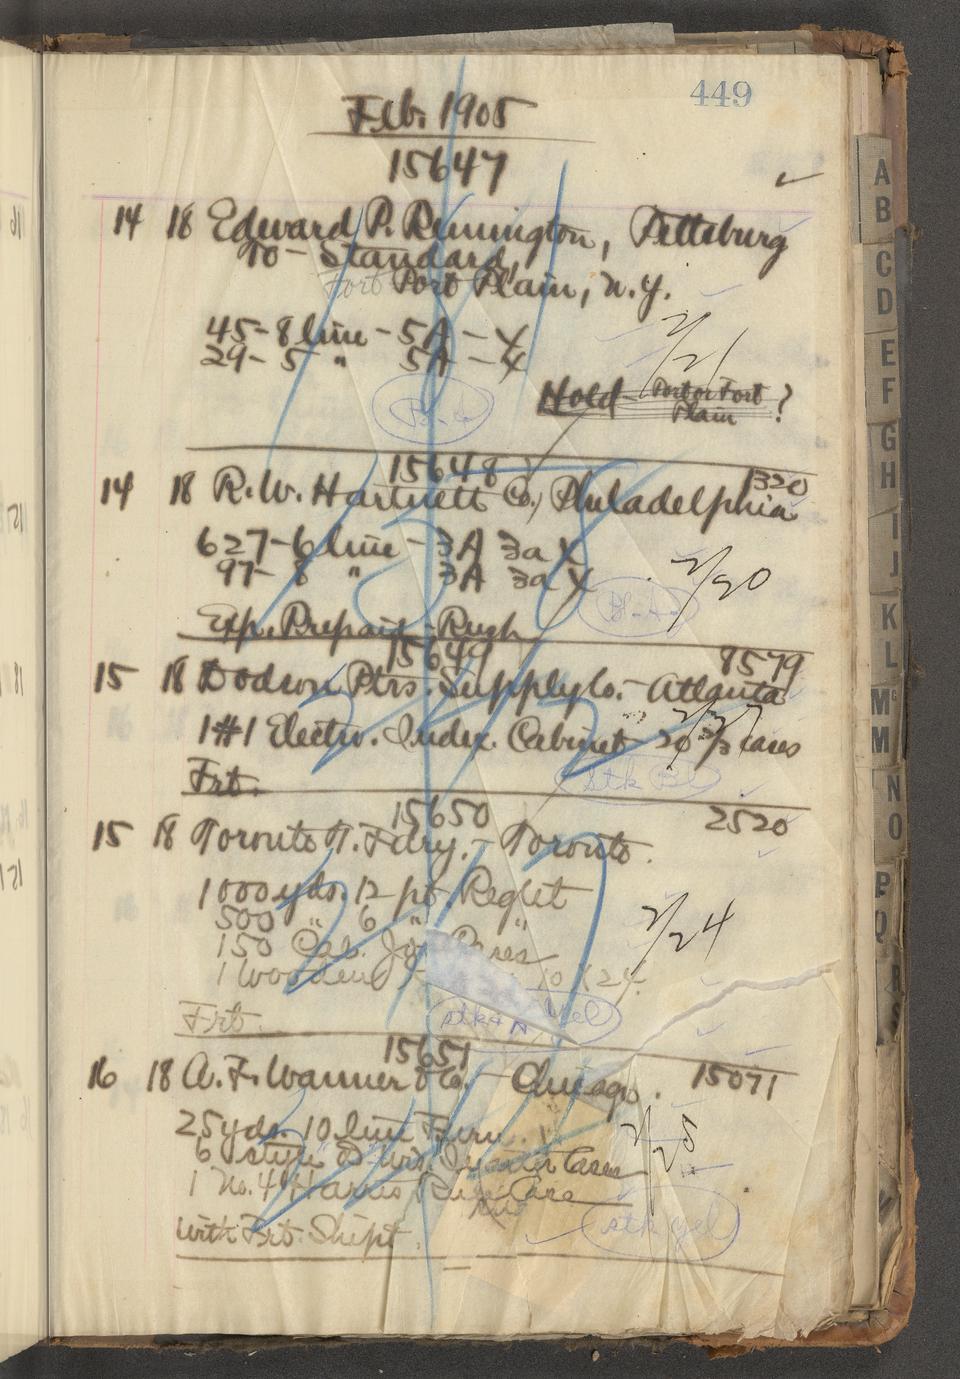 449
Feb. 1905
15647
14 18 Edward P. Remington, Pittsburg
To - Standard,
Fort Port Plain, N.Y.
45 - 8 line - 5A - X
29 - 5 " 5A - X
2/21
Hold - Port or Fort Plain ?
15648 1320
14 18 R. W. Hartnett Co., Philadelphia
627 - 6 line - 3A 3a X
97 - 8 " 3A 3a X
2/20
Exp. Prepaid - Rush
15649 8579
15 18 Dodson Ptrs. Supply Co. - Atlanta
1 #1 Electro. Index. Cabinet 20 2/3 cases
Frt.
15650 2520
15 18 Toronto T. Fdry. - Toronto.
1000 yds. 12 pt. Reglet
500 " 6 " "
150 Cab. Cases
1 Wooden 10 x 24
2/24
Frt.
stk yel
15651 15071
16 18 A. F. Wanner & Co. - Chicago.
25 yds. 10 line Furn.
6 style
1 No. 4 Harris Rule Case
with Frt. Shipt.
stk yel
A
B
C
D
E
F
G
H
I
J
K
L
Mc
M
N
O
P
Q
R